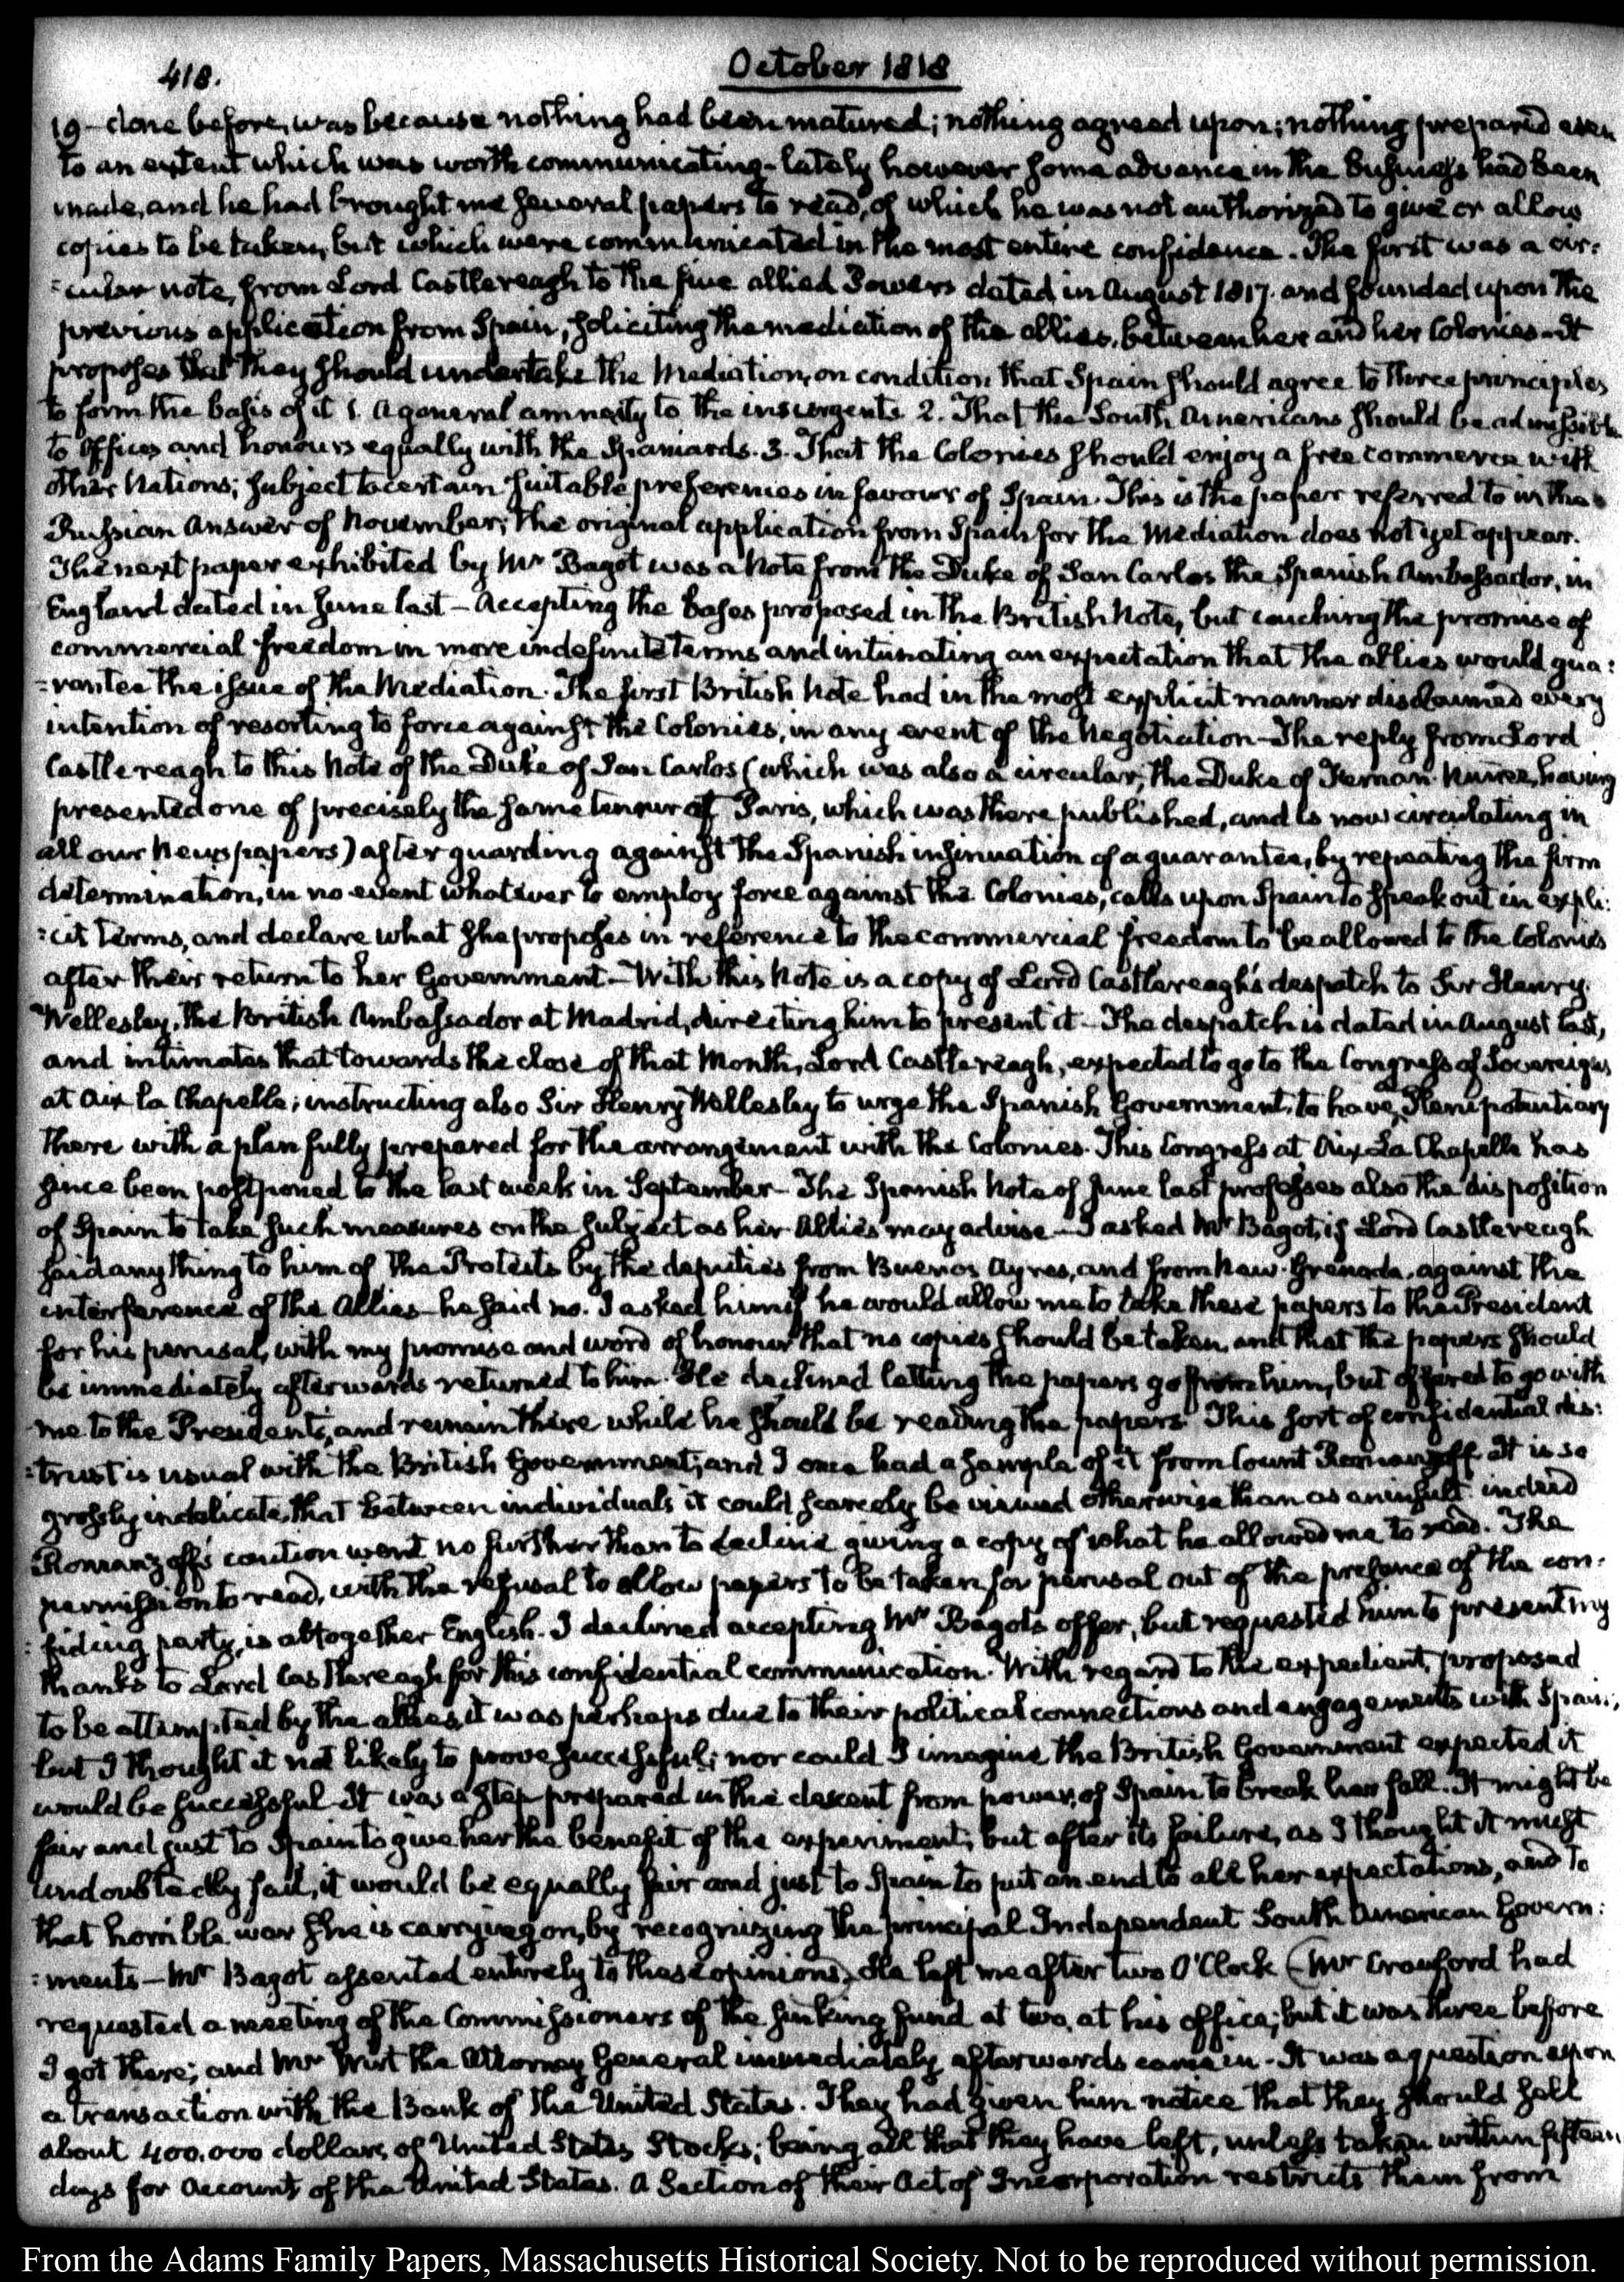 418.
October 1818
19– done before, was because nothing had been matured; nothing agreed upon; nothing prepared even
to an extent which was worth communicating– lately however some advance in the business had been
made, and he had brought me several papers to read, of which he was not authorized to give or allow
copies to be taken, but which were communicated in the most entire confidence. The first was a cir:
:cular note, from Lord Castlereagh to the five allied Powers dated in August 1817. and founded upon the
previous application from Spain, soliciting the mediation of the allies, between her and her Colonies– It
proposes that they should undertake the Mediation, on condition that Spain should agree to three principles
to form the basis of it 1. A general amnesty to the insurgents 2. That the South Americans should be admissible
to Offices and honours equally with the Spaniards. 3. That the Colonies should enjoy a free commerce with
other Nations; subject to certain suitable preferences in favour of Spain. This is the paper referred to in the
Russian Answer of November; the original application from Spain for the Mediation does not yet appear.
The next paper exhibited by Mr Bagot was a Note from the Duke of San Carlos the Spanish Ambassador, in
England dated in June last– Accepting the bases proposed in the British Note, but couching the promise of
commercial freedom in more indefinite terms and intimating an expectation that the allies would gua:
:rantee the issue of the Mediation. The first British Note had in the most explicit manner disclaimed every
intention of resorting to force against the Colonies, in any event of the Negotiation– The reply from Lord
Castlereagh to this Note of the Duke of San Carlos (which was also a circular, the Duke of Fernan Nunez, having
presented one of precisely the same tenour at Paris, which was there published, and is now circulating in
all our Newspapers) after guarding against the Spanish insinuation of a guarantee, by repeating the firm
determination, in no event whatever to employ force against the Colonies, calls upon Spain to speak out in expli:
:cit terms, and declare what she proposes in reference to the commercial freedom to be allowed to the Colonies
after their return to her Government– With this Note is a copy of Lord Castlereagh's despatch to Sir Henry
Wellesley, the British Ambassador at Madrid, directing him to present it– The despatch is dated in August last,
and intimates that towards the close of that Month, Lord Castlereagh, expected to go to the Congress of Sovereigns
at Aix la Chapelle; instructing also Sir Henry Wellesley to urge the Spanish Government, to have Plenipotentiary
there with a plan fully prepared for the arrangement with the Colonies. This Congress at Aix La Chapelle has
since been postponed to the last week in September– The Spanish Note of June last professes also the disposition
of Spain to take such measures on the subject as her Allies may advise– I asked Mr Bagot, if Lord Castlereagh
said any thing to him of the Protests by the deputies from Buenos Ayres, and from New-Grenada, against the
interference of the Allies– he said no. I asked him if he would allow me to take these papers to the President
for his perusal, with my promise and word of honour that no copies should be taken, and that the papers should
be immediately afterwards returned to him. He declined letting the papers go from him, but offered to go with
me to the President's, and remain there while he should be reading the papers. This sort of confidential dis:
:trust is usual with the British Government; and I once had a sample of it from Count Romanzoff It is so
grossly indelicate, that between individuals it could scarcely be viewed otherwise than as an insult. indeed
Romanzoff's caution went no further than to decline giving a copy of what he allowed me to read. The
permission to read, with the refusal to allow papers to be taken for perusal out of the presence of the con:
:fiding party, is altogether English. I declined accepting Mr Bagot's offer, but requested him to present my
thanks to Lord Castlereagh for this confidential communication. With regard to the expedient, proposed
to be attempted by the allies, it was perhaps due to their political connections and engagements with Spain,
but I thought it not likely to prove successful; nor could I imagine the British Government expected it
would be successful It was a step prepared in the descent from power, of Spain to break her fall. It might be
fair and just to Spain to give her the benefit of the experiment; but after its failure, as I thought it must
undoubtedly fail, it would be equally fair and just to Spain to put an end to all her expectations, and to
that horrible war she is carrying on, by recognizing the principal Independent South American Govern:
:ments– Mr Bagot assented entirely to these opinions. He left me after two O'Clock (Mr Crawford had
requested a meeting of the Commissioners of the sinking fund at two, at his office; but it was three before
I got there; and Mr Wirt the Attorney General immediately afterwards came in– It was a question upon
a transaction with the Bank of the United States. They had given him notice that they should sell
about 400,000 dollars, of United States Stocks; being all that they have left, unless taken within fifteen
days for account of the United States. A Section of their Act of Incorporation restricts them from
From the Adams Family Papers, Massachusetts Historical Society. Not to be reproduced without permission.